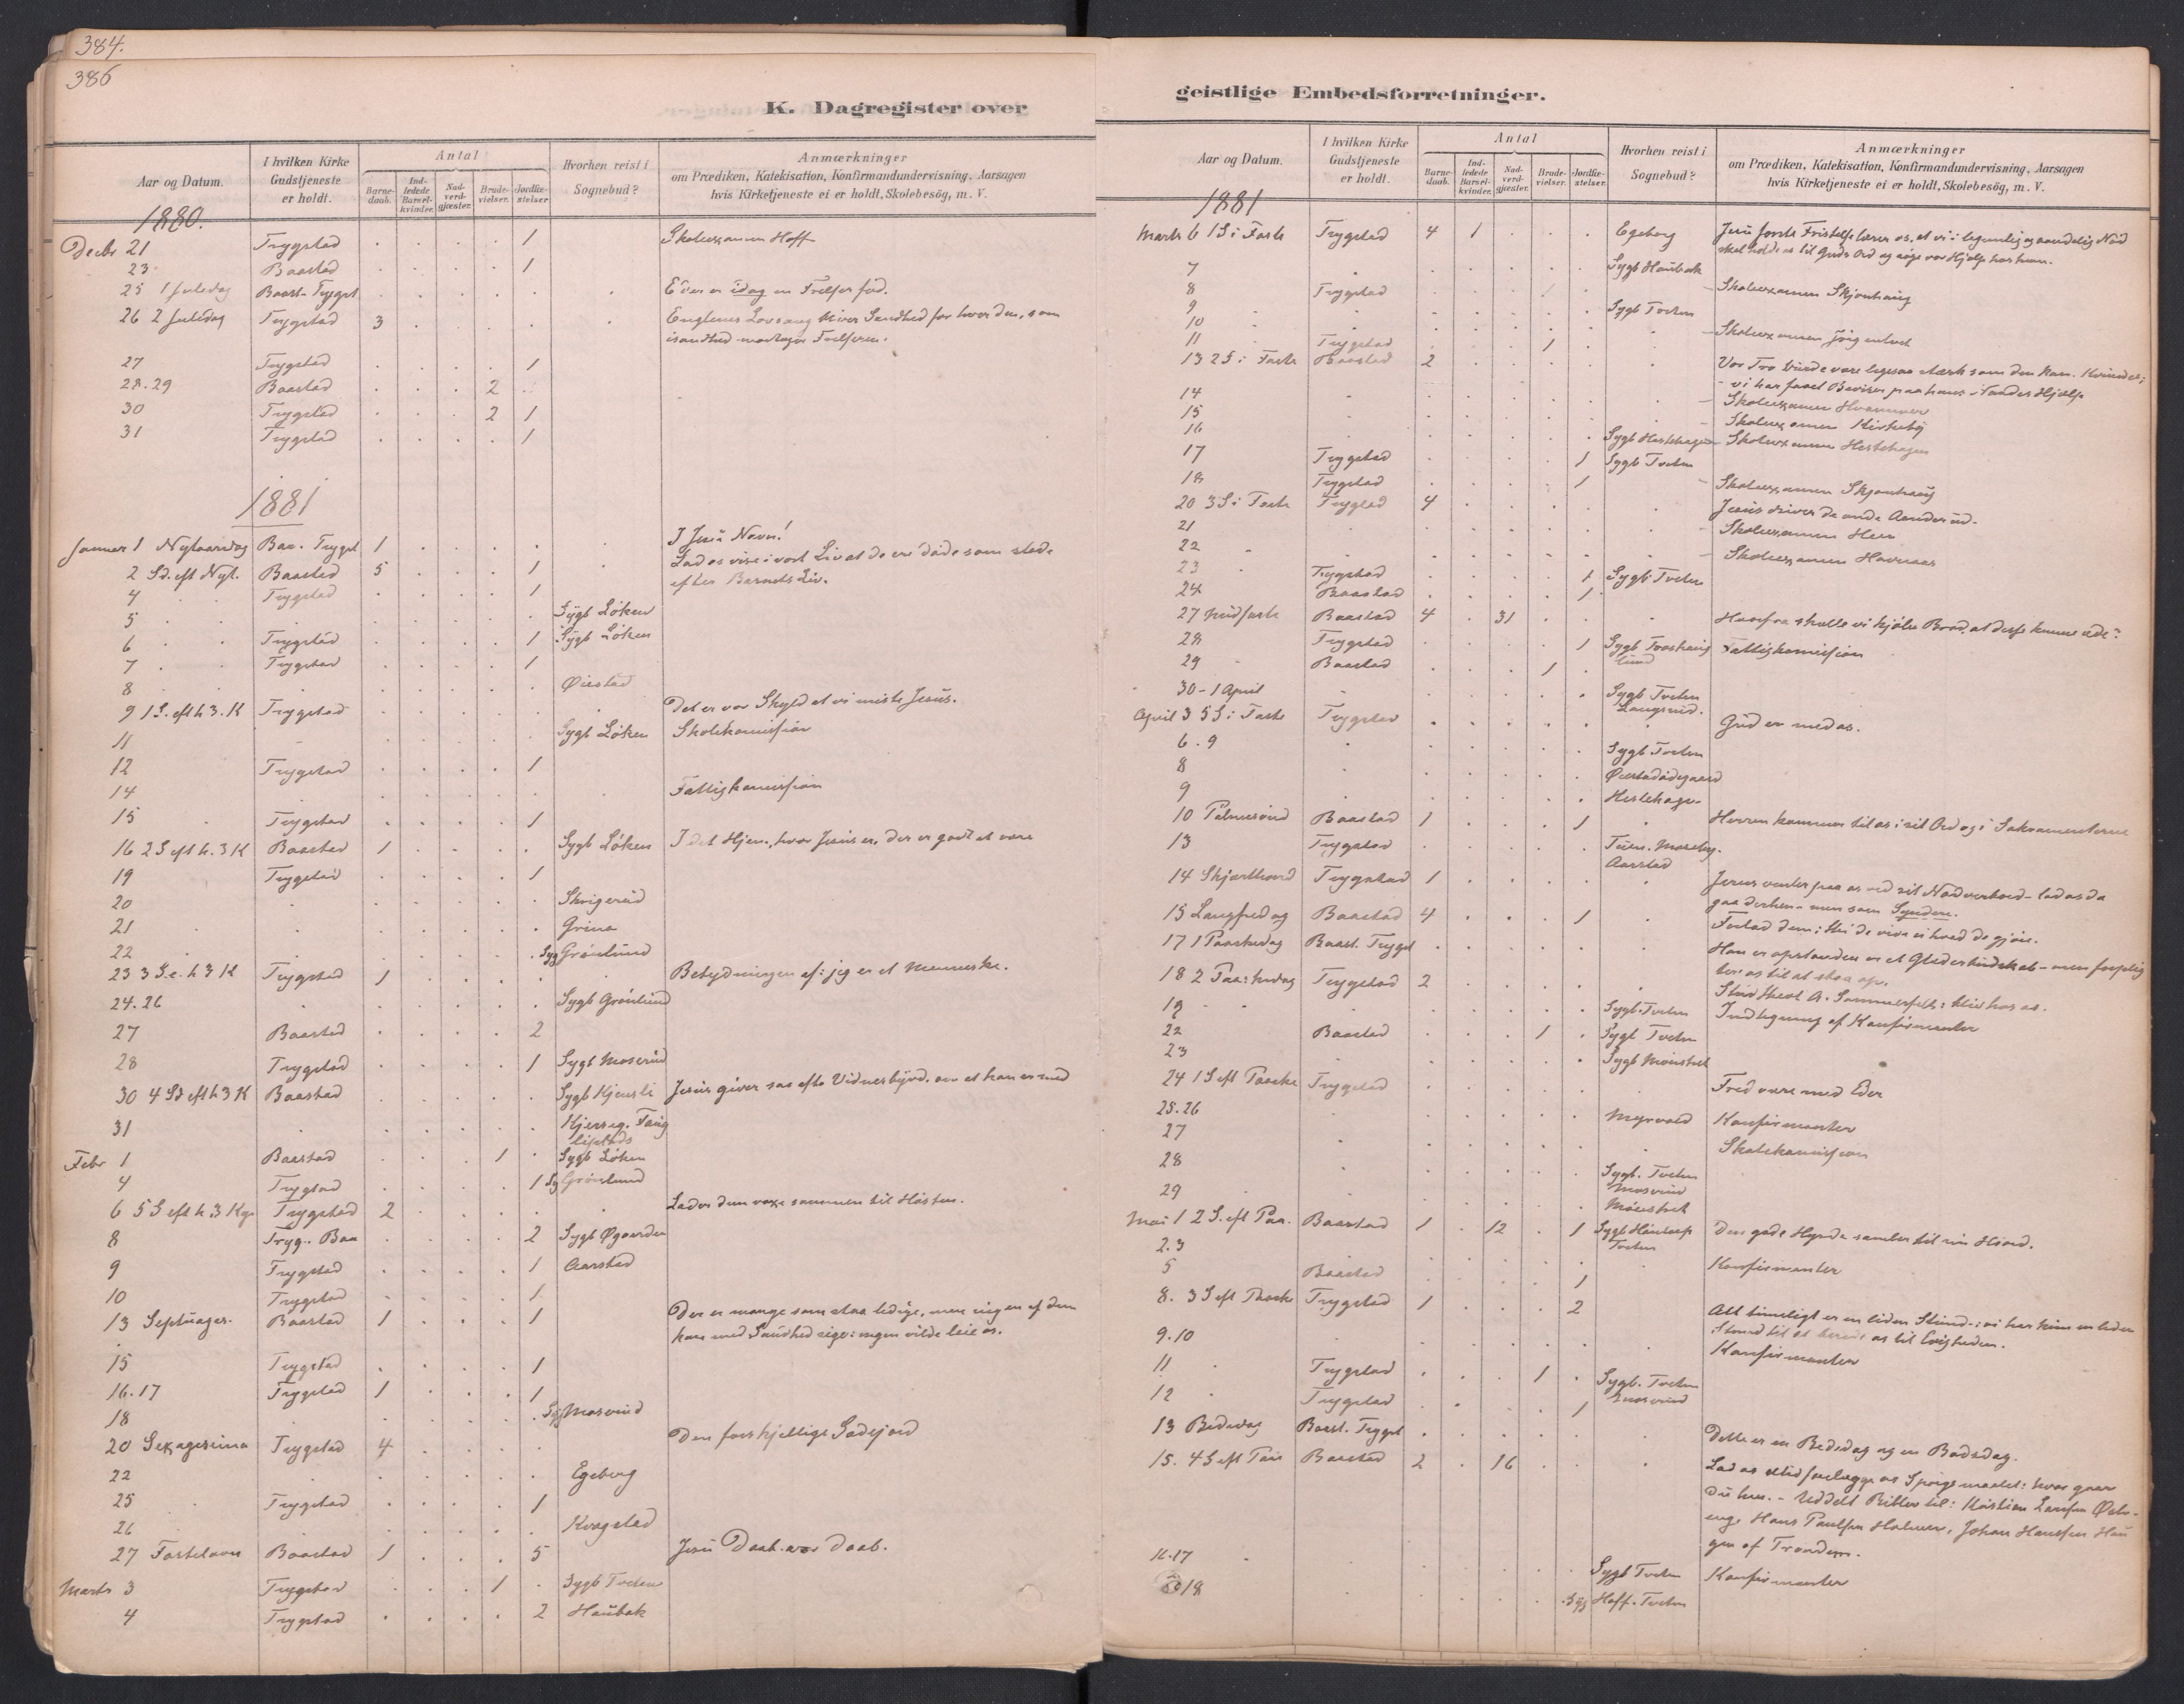 384.
386
K. Dagregister over
Aar og Datum.
I hvilken Kirke Gudstjeneste er holdt.
Antal
Barnedaab.
Indledede Barselkvinder.
Nadverdgjæster.
Brudevielser.
Jordfæstelser
Hvorhen reist i Sognebud?
Anmærkninger
om Prædiken, Katekisation, Konfirmandundervisning, Aarsagen
hvis Kirketjeneste ei er holdt, Skolebesög, m. V.
1880.
Decbr 21 Trygstad . . . . 1 Skolexamen Hoff
23 Baastad . . . . 1
25 1 Juledag Baast-Trygst . . . . . . Eder er idag en Frelser fød.
26 2 Juledag Trygstad 3 . . . . . Englenes Lovsang bliver Sandhed for hver den, som
isandhed modtager Frelseren.
27 Trygstad . . . . 1
28.29 Baastad . . . 2 .
30 Trygstad . . . 2 1
31 Trygstad . . . . 1
1881
Januar 1 Nytaarsdag Baa. Trygst 1 . . . . . I Jesu Navn!
2 Sd. eft Nyt. Baastad 5 . . . 1 . Lad os vise i vort Liv at de ere døde som stode
efter Barnets Liv.
4 Trygstad . . . . 1
5 . . . . . Sygb Løken
6 Trygstad . . . . 1 Sygb Løken
7 Trygstad . . . . 1
8 . . . . . Øiestad
9 1 S. eft h. 3. K Trygstad . . . . . . Det er vor Skyld at vi miste Jesus.
11 . . . . . Sygb Løken Skolekomission
12 Trygstad . . . . 1
14 . . . . . . Fattigkomission
15 Trygstad . . . . 1
16 2 S eft h. 3 K Baastad 1 . . . . Sygb Løken I det Hjem, hvor Jesus er, der er godt at være
19 Trygstad . . . . 1
20 . . . . . Skrigerud
21 . . . . . Grina
22 . . . . . Syg Grønlund
23 3 S. e. h 3 K Trygstad 1 . . . . . Betydningen af: jeg er et Menneske.
24.26 . . . . . Sygb Grønlund
27 Baastad . . . . 2
28 Trygstad . . . . 1 Sygb Moserud
30 4 Sd eft h 3 K Baastad . . . . . Sygb Kjensli Jesus giver saa ofte Vidnesbyrd. om at han er med
31 . . . . . Kjerseg. Fang
Febr 1 Baastad . . . 1 . Sygb Løken
4 Trygstad . . . . 1 Sy Grønlund
6 5 S eft h. 3 Kgr Trygstad 2 . . . . . Lader dem voxe sammen til Høsten.
8 Tryg.. Baa . . . . 2 Sygb Øgaarden
9 Trygstad . . . . 1 Aarstad
10 Trygstad . . . . 1
13 Septuages. Baastad 1 . . . 1 Der er mange som staa ledige, men ingen af dem
kan med Sandhed sige: ingen vilde leie os.
15 Trygstad . . . . 1
16.17 Trygstad 1 . . . 1
18 . . . . . Syg Moserud
20 Sexagesima Trygstad 4 . . . . Den forskjellige Sædejord
22 . . . . . Egeberg
25 Trygstad . . . . 1
26 . . . . . Kragstad
27 Fastelavn Baastad 1 . . . 5 Jesu Daab. vor Daab.
Marts 3 Trygstad . . . 1 . Sygb Tveten
4 Trygstad . . . . 2 Haubak
geistlige Embedsforretninger.
Aar og Datum.
I hvilken Kirke Gudstjeneste er holdt.
Antal
Barnedaab.
Indledede Barselkvinder.
Nadverdgjæster.
Brudevielser.
Jordfæstelser.
Hvorhen reist i Sognebud?
Anmærkninger
om Prædiken, Katekisation, Konfirmandundervisning, Aarsagen
hvis Kirketjeneste ei er holdt, Skolebesög, m. V.
1881
Marts 6 1 S i Faste Trygstad 4 1 . . . Egeberg Jesu første Fristelse lærer os, at vi i legemlig og aandelig Nød
skal holde os til Guds Ord og søge vor Hjælp hos ham.
7 . . . . . Sygb Haubak
8 Trygstad Skolexamen Skjønhaug
9 . . . . . Sygb Tveten
10 Skolexamen
11 Trygstad . . . 1 .
13 2 S i Faste Baastad 2 Vor Tro burde være ligesaa stærk som den kan. Kvindes;
- vi har faaet Beviser paa hans Naades Hjælp
14 Skolexamen
15 Skolexamen Kirkeby
16 Sygb Hestehagen Skolexamen Hestehagen
17 Trygstad . . . . 1 Sygb Tveten
18 Trygstad . . . . 1 Skolexamen Skjønhaug
20 3 S i Faste Trygstad 4 Jesus driver de onde Aander ud.
21 Skolexamen Hen
22 Skolexamen Havnaas
23 Trygstad . . . . 1 Sygb. Tveten
24 Baastad . . . . 1
27 Midfaste Baastad 4 . 31 . . . Hvorfra skulle vi kjøbe Brød, at disse kunne æde?
28 Trygstad . . . . 1 Fattigkomission
29 Baastad . . . 1 .
30 - 1 April Sygb Tveten
Langsrud.
April 3 5 S i Faste Trygstad . . . . . . Gud er med os.
6.9 Sygb Tveten
8 Øiestadødegaard
9 Hestehagen
10 Palmesønd Baastad 1 . . . 1 . Herren kommer til os i sit Ord og i Sakramenterne
13 Trygstad
Aarstad
14 Skjærthorsd Trygstad 1 Jesus venter paa os ved sit Nadverbord - lad os da
gaa derhen - men som Syndere.
15 Langfredag Baastad 4 . . . 1 . Forlad dem; thi de vide ei hvad de gjøre.
17 1 Paaskedag Baast. Trygst Han er opstanden er et Glædesbudskab - men
18 2 Paaskedag Trygstad 2 Stud theol A. Sommerfelt: bliv hos os.
19 Sygb. Tveten Indtegning af Konfirmanter
22 Baastad . . . 1 . Sygb Tveten
23 Sygb Mønstret
24 1 S eft Paaske Trygstad Fred være med Eder
25.26 Myrvold Konfirmanter
27 Skolekomission
28 Sygb. Tveten
Moserud
29 Mønstret
Mai 1 2 S. eft Paa. Baastad 1 . 12 . 1 Den gode Hyrde samler til sin Hjord.
2.3 Tveten Konfirmanter
5 Baastad . . . . 1
8. 3 S eft Paaske Trygstad 1 . . . 2 Alt timeligt er en liden Stund; vi har kun en liden
Stund til at berede os til Evigheden.
9.10 Konfirmanter
11 Trygstad . . . 1 . Sygb. Tveten
Moserud
12 Trygstad . . . . 1
13 Bededag Baast. Trygst Dette er en Bededag og en Bodsdag.
15. 4 S eft Paa Baastad 2 . 16 . . . Lad os altid forelægge os Spørgsmaalet: hvor gaar
du hen. - Uddelt Bibler til: Kristian Larsen
Hans Paulsen Holmen, Johan Hansen Hau
gen af Trandem.
16.17 Sygb Tveten Konfirmanter
18 Syg Hoff. Tveten